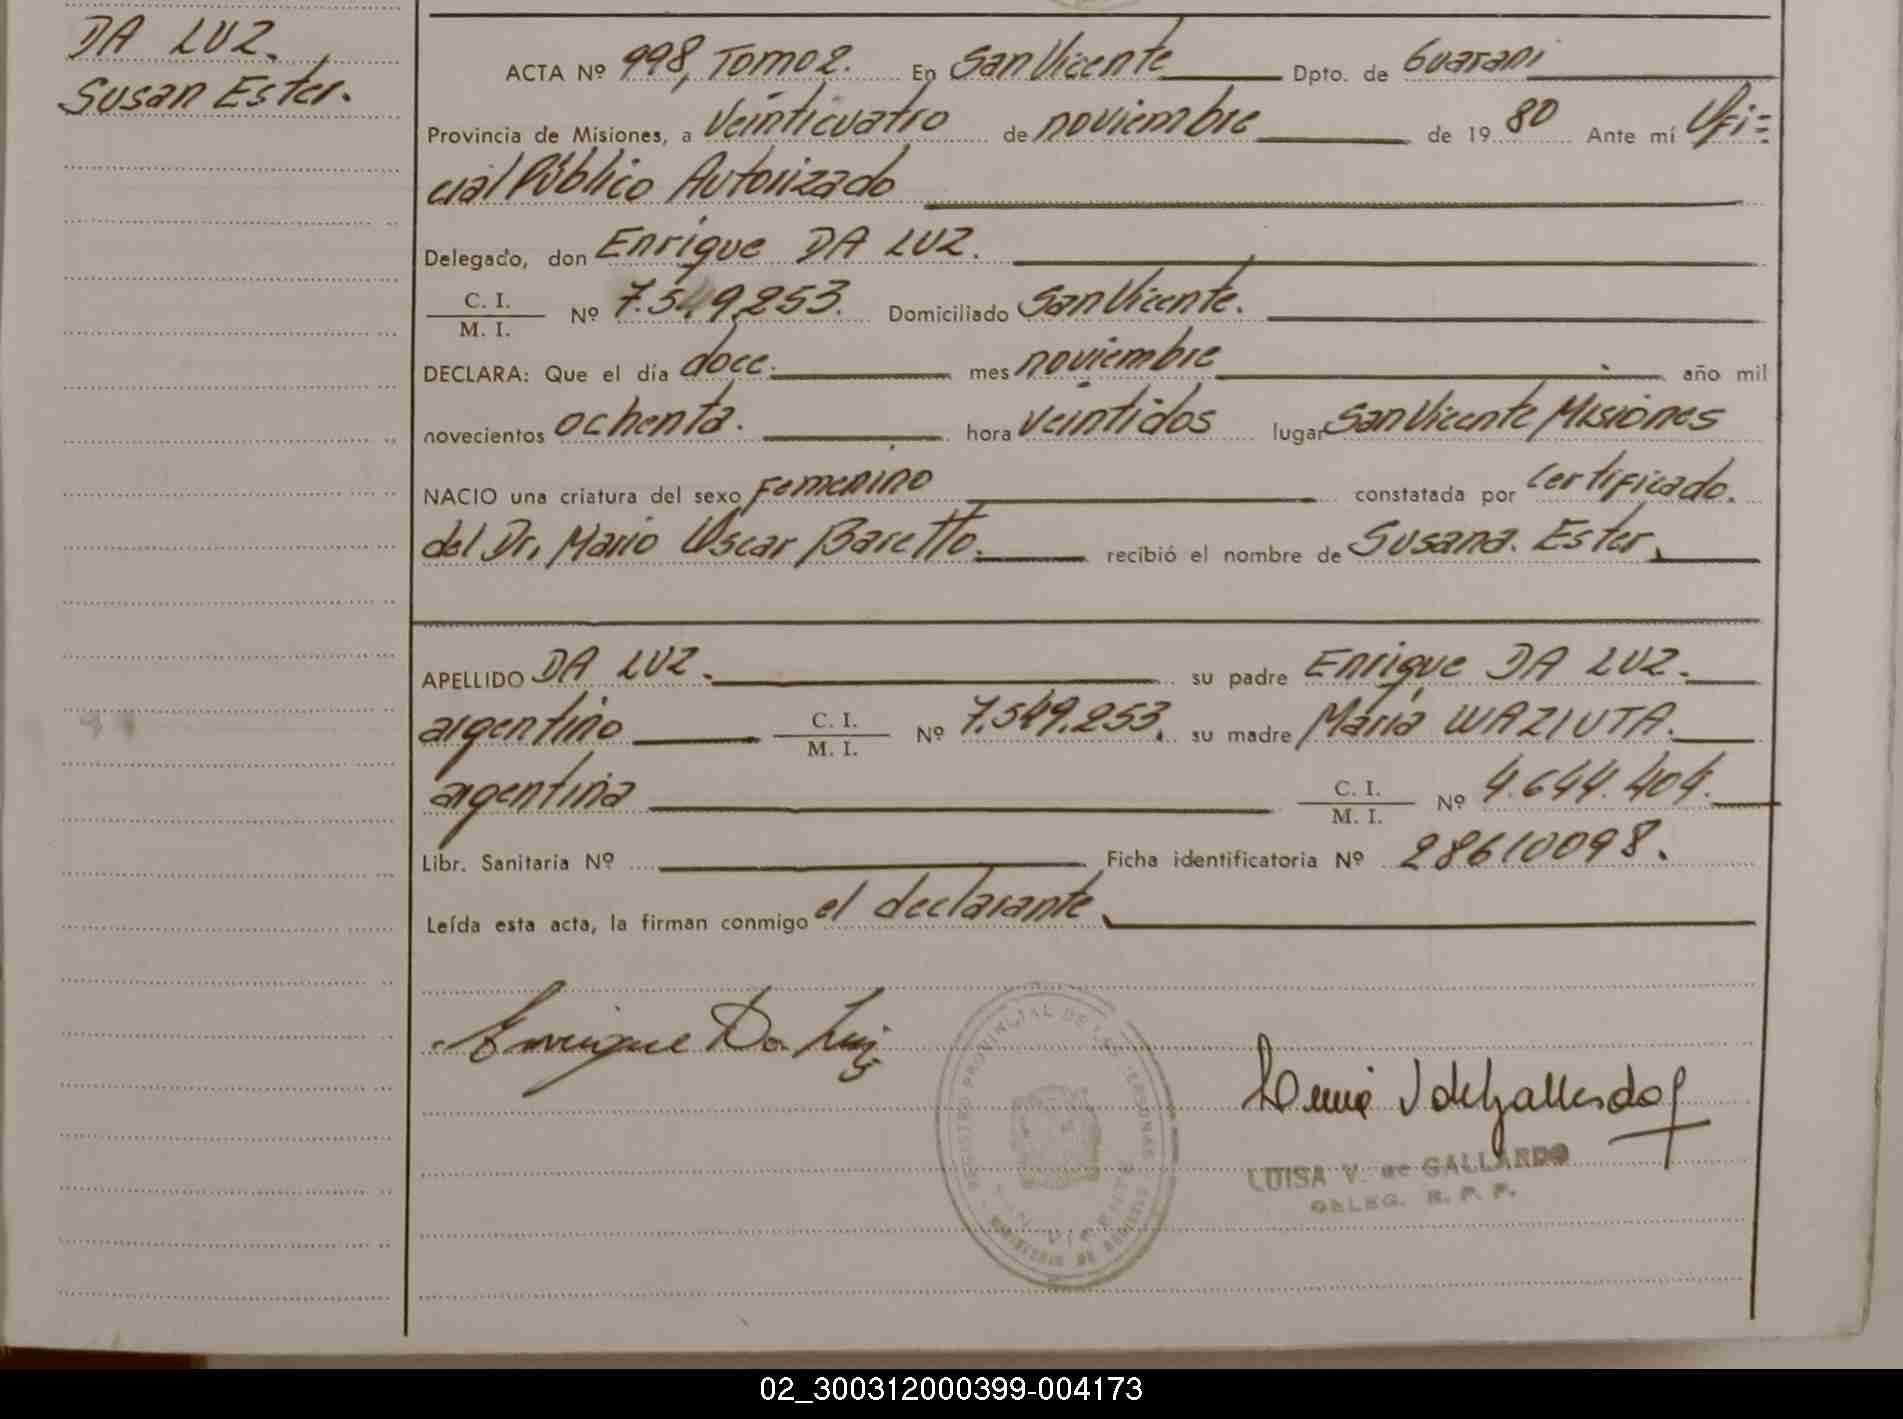 DA LUZ.
Susan Ester.
ACTA Nº 998, Tomo 2. En San Vicente Dpto. de Guarani
Provincia de Misiones, a veinticuatro de noviembre de 19 80 Ante mí Ofi=
cial Público Autorizado
Delegado, don Enrique DA LUZ.
C. I.
M. I. Nº 7.549.253. Domiciliado San Vicente.
DECLARA: Que el día doce. mes noviembre año mil
novecientos ochenta. hora veintidos lugar San Vicente Misiones
NACIO una criatura del sexo Femenino constatada por Certificado.
del Dr. Mario Oscar Baretto. recibió el nombre de Susana. Ester.
APELLIDO DA LUZ. su padre Enrique DA LUZ.
argentino C. I.
M. I. Nº 7.549.253. su madre María WAZIUTA.
argentina C. I.
M. I. Nº 4.644.404.
Libr. Sanitaria Nº Ficha identificatoria Nº 28610098.
Leída esta acta, la firman conmigo el declarante.
Enrique Da Luz
REGISTRO PROVINCIAL DE LAS PERSONAS
LUISA V. de GALLARDO
DELEG. R. P. P.
02_300312000399-004173